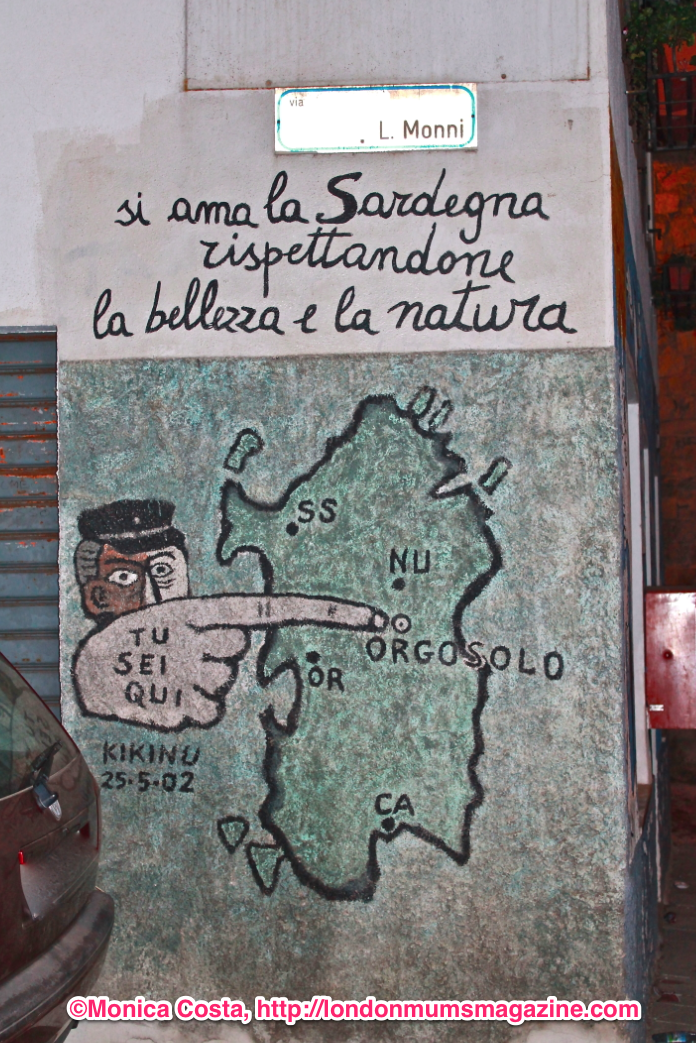 via
L. Monni
si ama la Sardegna
rispettandone
la bellezza e la natura
SS
NU
ORGOSOLO
TU
SEI
QUI
OR
KIKINU
25·5·02
CA
©Monica Costa, http://londonmumsmagazine.com